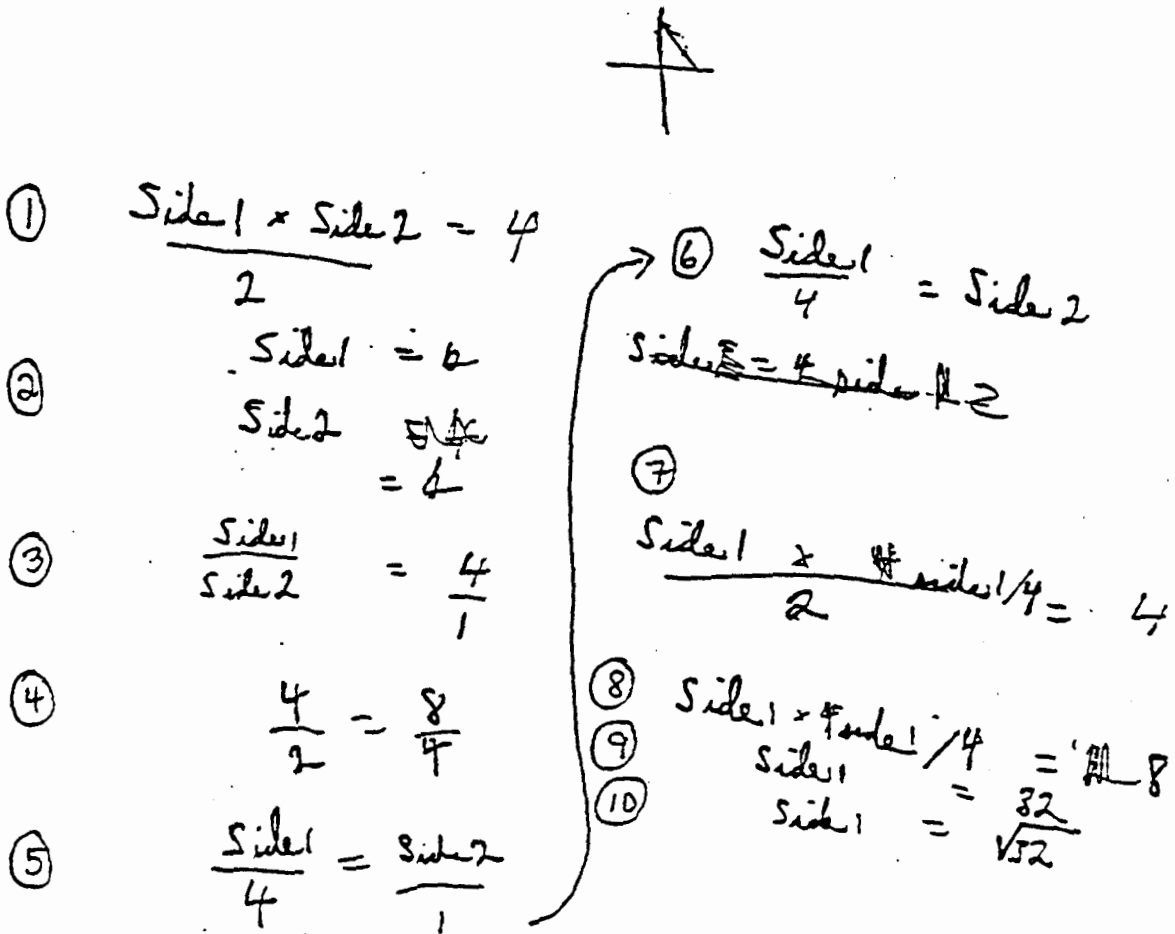 ① Side 1 × Side 2 / 2 = 4
② Side 1 = b
Side 2
=
③ Side 1 / Side 2 = 4 / 1
④ 4 / 2 = 8 / 4
⑤ Side 1 / 4 = Side 2 / 1
⑥ Side 1 / 4 = Side 2
⑦
Side 1 × side 1/4 / 2 = 4
⑧ Side 1 × side 1 / 4 = 8
⑨ Side 1 = 32
⑩ Side 1 = √32